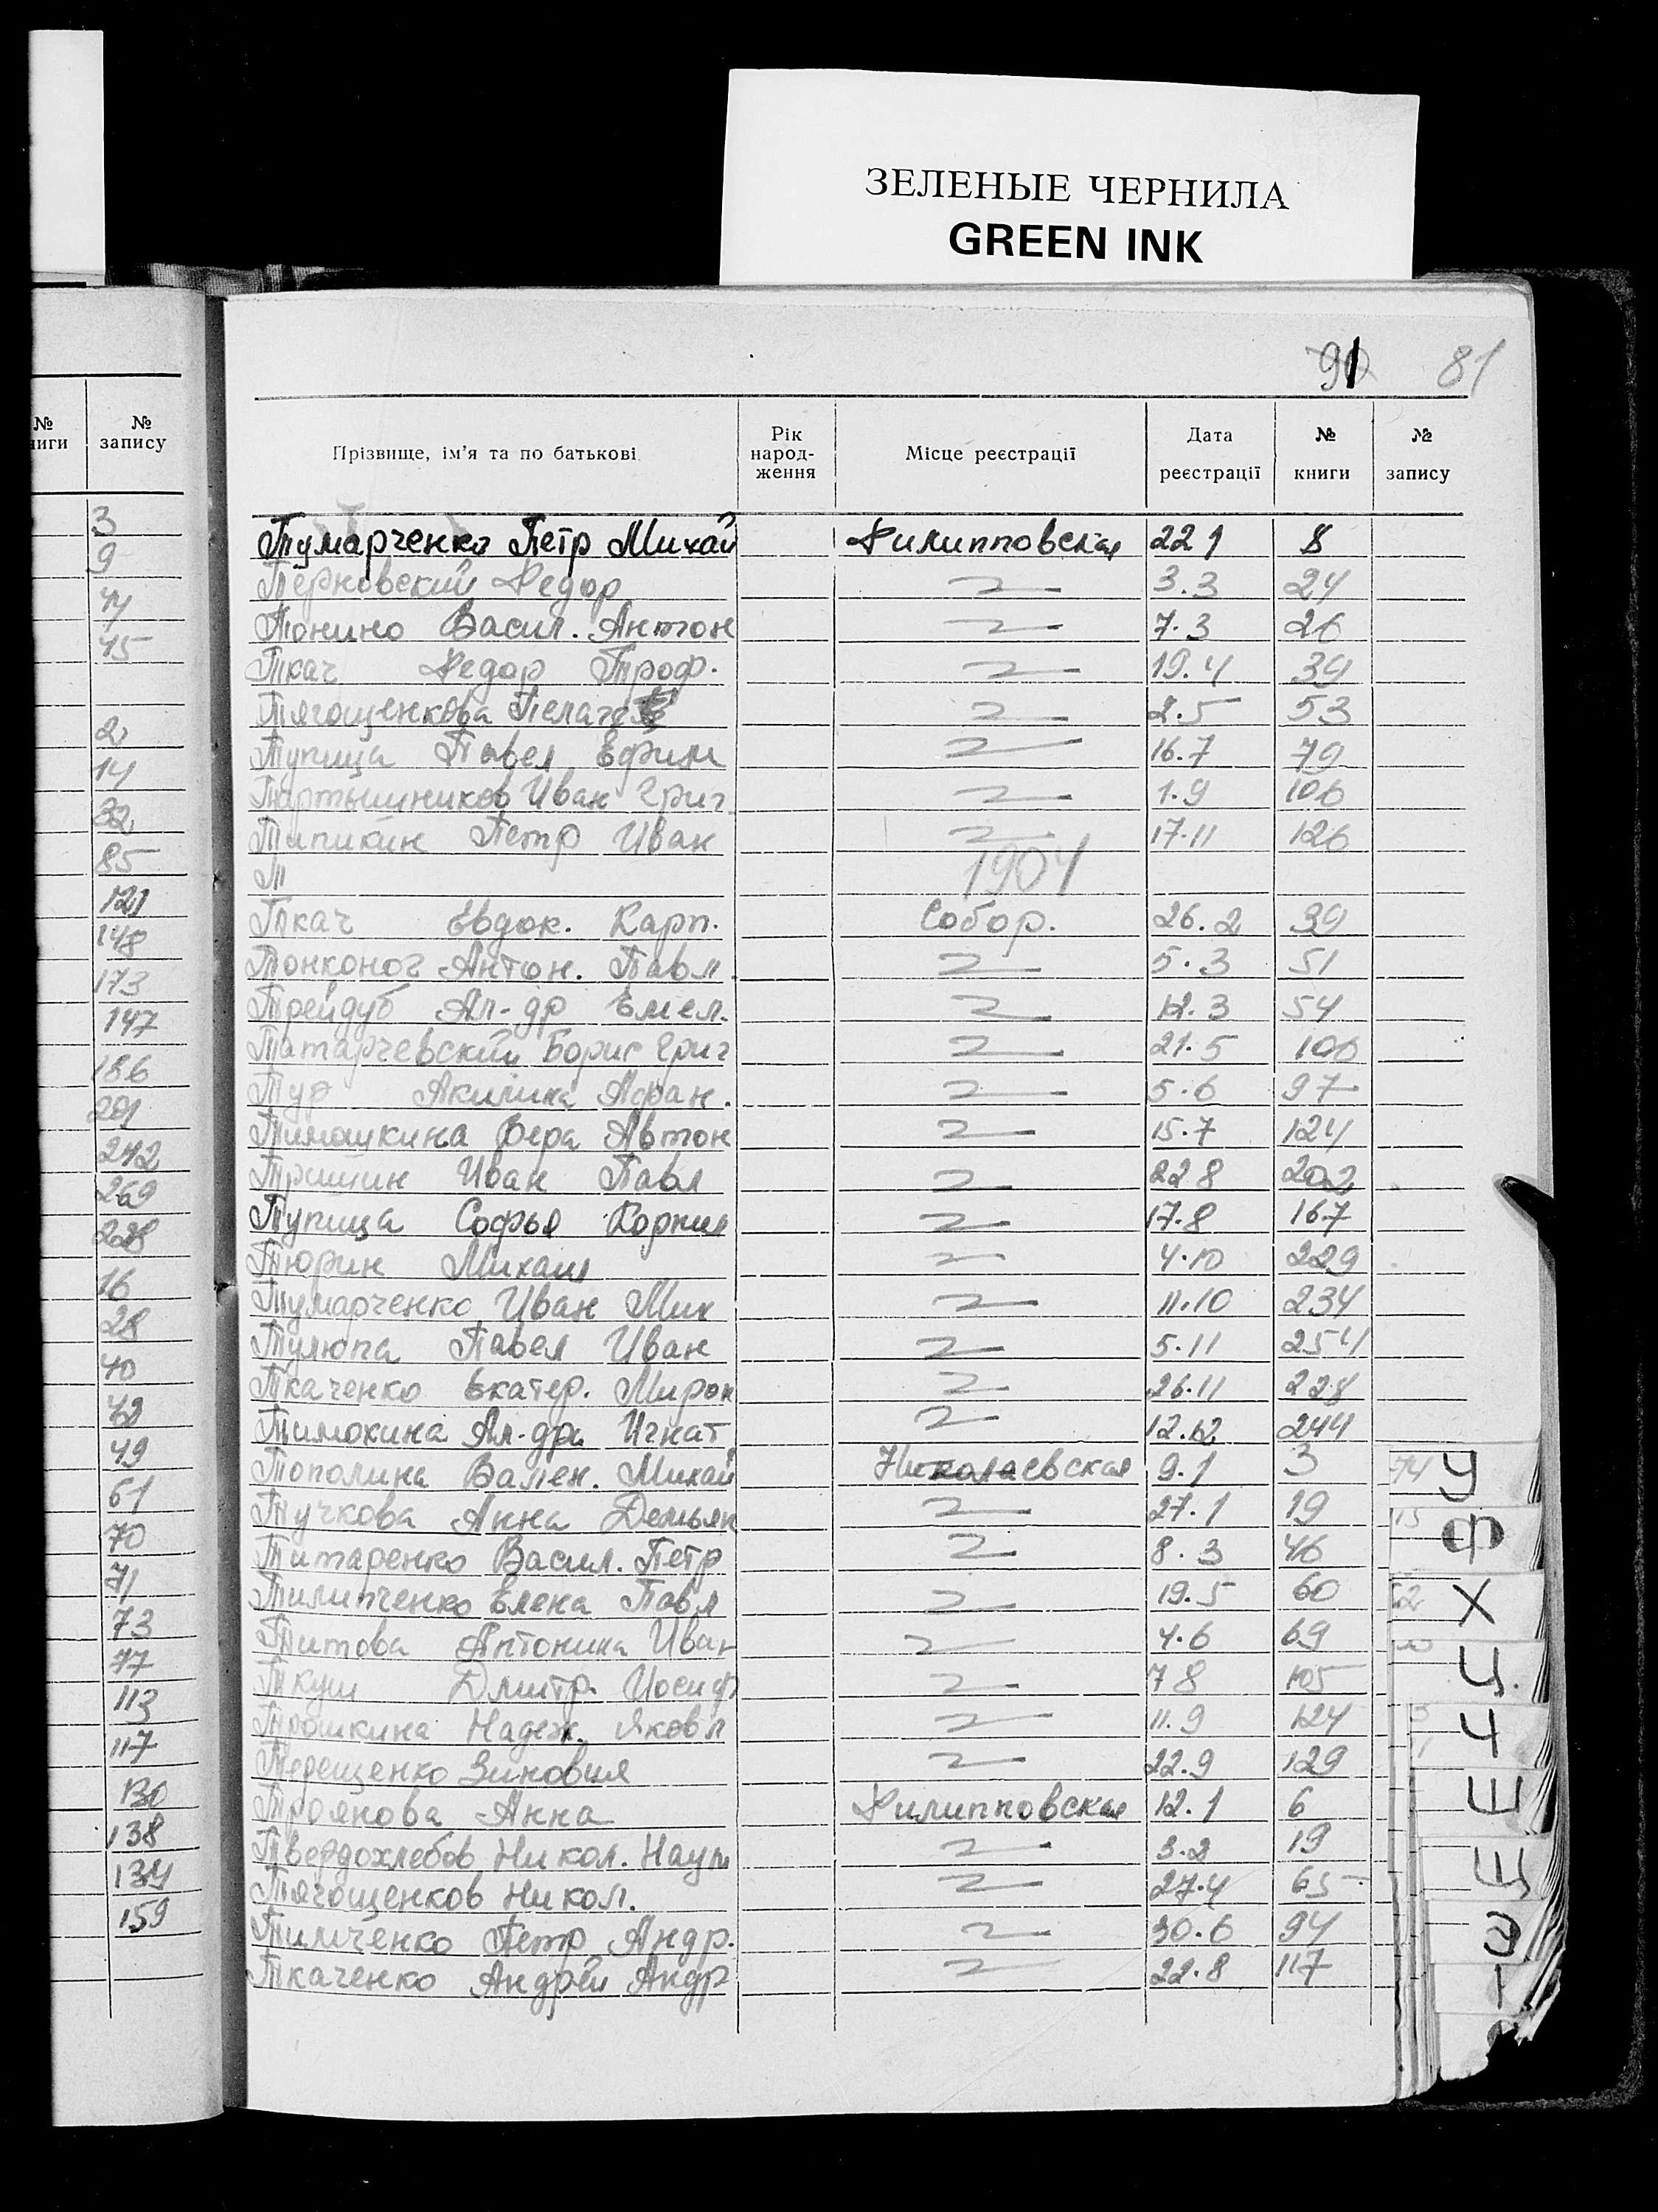 ЗЕЛЕНЫЕ ЧЕРНИЛА
GREEN INK
91 81
№ книги № запису
3
9
44
45
2
14
32
85
121
148
173
147
186
201
242
269
228
16
28
40
42
49
61
70
71
73
77
113
117
130
138
134
159
Прізвище, ім'я та по батькові Рік народження Місце реєстрації Дата реєстрації № книги № запису
Тумарченко Петр Михай Филипповская 22 1 8
Терновский Федор –〃– 3.3 24
Тонино Васил. Антон –〃– 7.3 26
Ткач Федор Троф. –〃– 19.4 39
Тягощенкова Пелагея –〃– 2.5 53
Тупица Павел Ефим –〃– 16.7 79
Тартышников Иван Григ –〃– 1.9 106
Типикин Петр Иван –〃– 17.11 126
Т 1904
Ткач Евдок. Карп. Собор. 26.2 39
Тонконог Антон. Павл. –〃– 5.3 51
Трейдуб Ал-др Емел. –〃– 12.3 54
Татарчевский Борис Григ –〃– 21.5 100
Тур Акилина Афан. –〃– 5.6 97
Тимошкина Вера Автон –〃– 15.7 124
Тришин Иван Павл –〃– 22 8 202
Тупица Софья Корнил –〃– 17.8 167
Тюрин Михаил –〃– 4.10 229
Тумарченко Иван Мих –〃– 11.10 234
Тулюпа Павел Иван –〃– 5.11 254
Ткаченко Екатер. Мирон –〃– 26.11 228
Тимохина Ал-дра Игнат –〃– 12.12 244
Тополина Вален. Михай Николаевская 9.1 3
Тучкова Анна Демьян –〃– 27.1 19
Титаренко Васил. Петр –〃– 8.3 46
Тилипченко Елена Павл –〃– 19.5 60
Титова Антонина Иван –〃– 4.6 69
Ткуш Дмитр. Иосиф –〃– 7 8 105
Трошкина Надеж. Яковл –〃– 11.9 124
Терещенко Зиновия –〃– 22.9 129
Троянова Анна Филипповская 12.1 6
Твердохлебов Никол. Наум –〃– 3.2 19
Тягощенков Никол. –〃– 27.4 65
Тимченко Петр Андр. –〃– 30.6 94
Ткаченко Андрей Андр –〃– 22.8 117
У
Ф
Х
Ц
Ч
Ш
Щ
Э